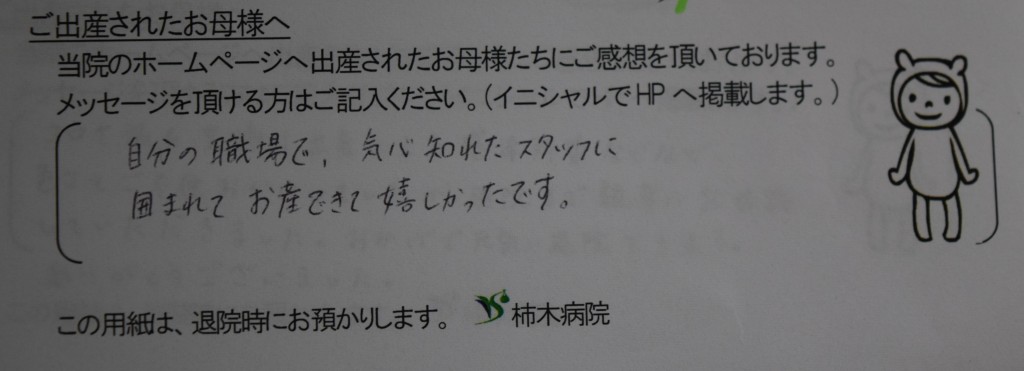 ご出産されたお母様へ
当院のホームページへ出産されたお母様たちにご感想を頂いております。
メッセージを頂ける方はご記入ください。(イニシャルでHPへ掲載します。)
自分の職場で、気心知れたスタッフに
囲まれてお産できて嬉しかったです。
この用紙は、退院時にお預かりします。 柿木病院